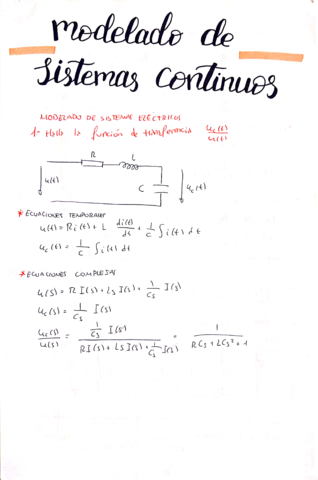 Modelado de
Sistemas Continuos
MODELADO DE SISTEMAS ELÉCTRICOS
1- Halla la función de transferencia uc(t)/u(t)
R L
u(t) C uc(t)
* ECUACIONES TEMPORALES
u(t) = Ri(t) + L di(t)/dt + 1/C ∫i(t) dt
uc(t) = 1/C ∫i(t) dt
* ECUACIONES COMPLEJAS
u(s) = R I(s) + Ls I(s) + 1/Cs I(s)
uc(s) = 1/Cs I(s)
uc(s)/u(s) = (1/Cs I(s))/(RI(s) + LsI(s) + 1/Cs I(s)) = 1/(RCs + LCs² + 1)